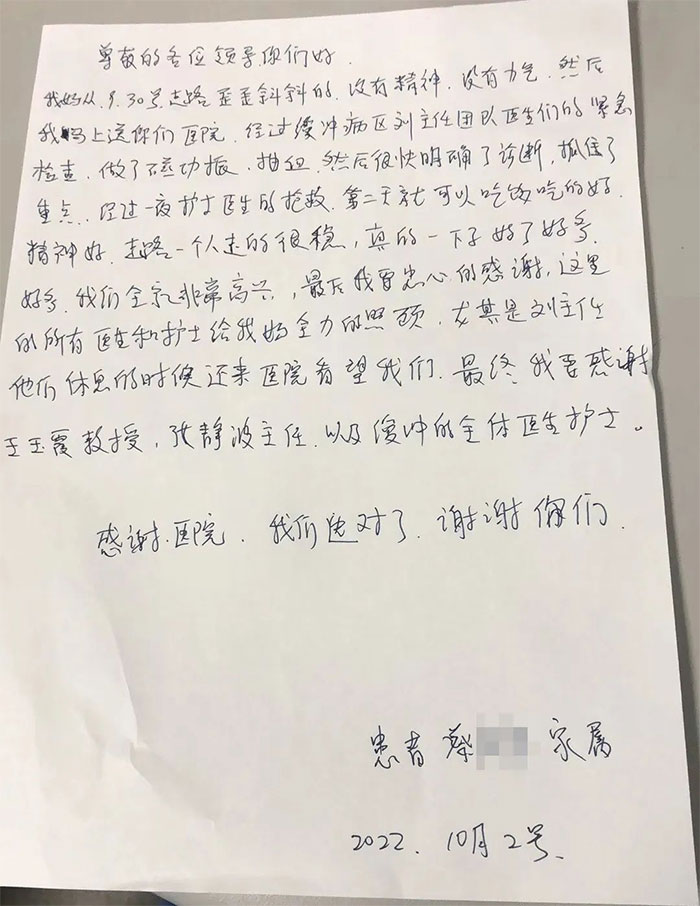 尊敬的各位领导你们好.
我妈从.9.30号走路歪歪斜斜的.没有精神.没有力气.然后
我马上送你们医院.经过缓冲病区刘主任团队医生们的紧急
检查.做了磁功振.抽血.然后很快明确了诊断.抓住了
重点.经过一夜护士医生的抢救.第二天就可以吃饭吃的好.
精神好.走路一个人走的很稳,真的一下子好了好多.
好多.我们全家非常高兴,最后我要忠心的感谢,这里
的所有医生和护士给我妈全力的照顾,尤其是刘主任
他们休息的时候还来医院看望我们.最终我要感谢
王玉霞教授,张静波主任.以及缓冲的全体医生护士。
感谢.医院.我们选对了.谢谢你们.
患者蔡 家属
2022.10月2号.